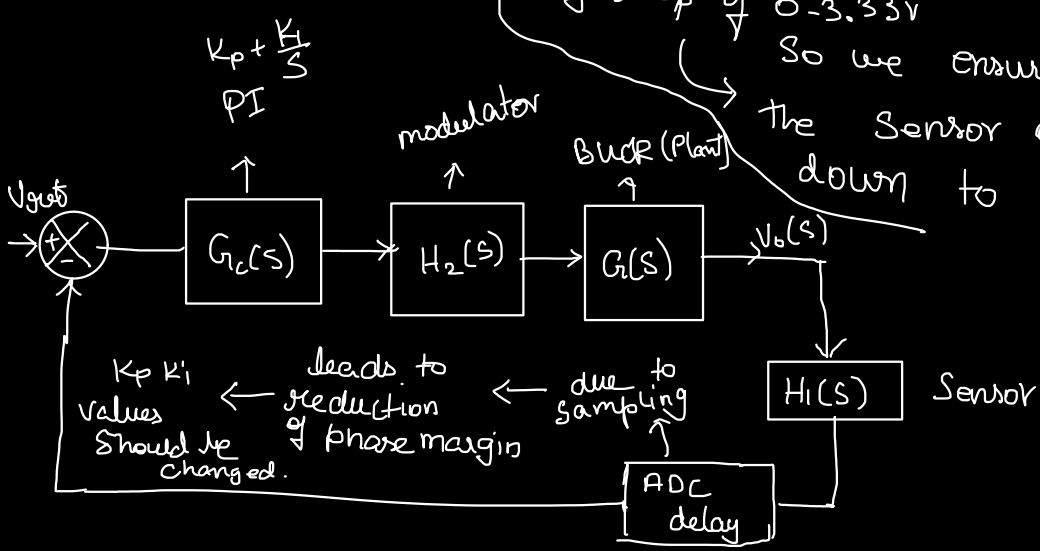 0-3.33v
So we ensur
the Sensor
down to
Kp + Ki/S
PI
modulator
Buck (Plant)
Vref
+
-
Gc(S)
H2(S)
G(S)
Vo(S)
H1(S)
Sensor
ADC
delay
due to
sampling
leads to
reduction
of phase margin
Kp Ki
values
Should be
changed.